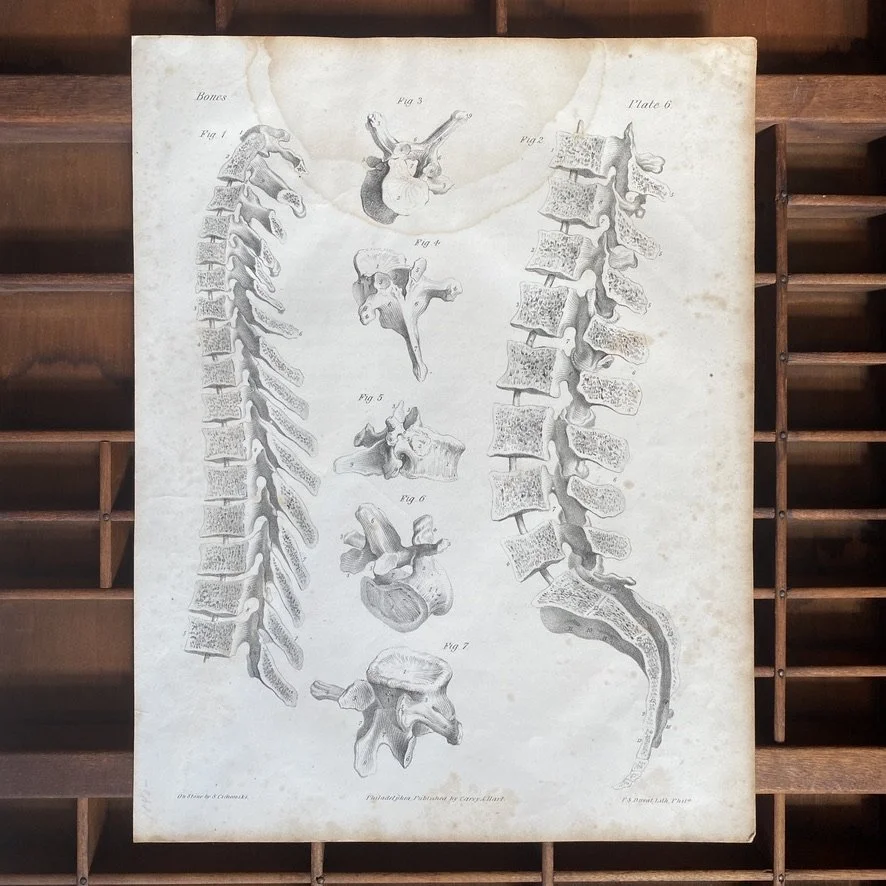 Bones
Plate 6
Fig 1
Fig 2
Fig 3
Fig 4
Fig 5
Fig 6
Fig 7
On Stone by S. Cichowski.
Philadelphia, Published by Carey & Hart.
P.S. Duval, Lith. Phila